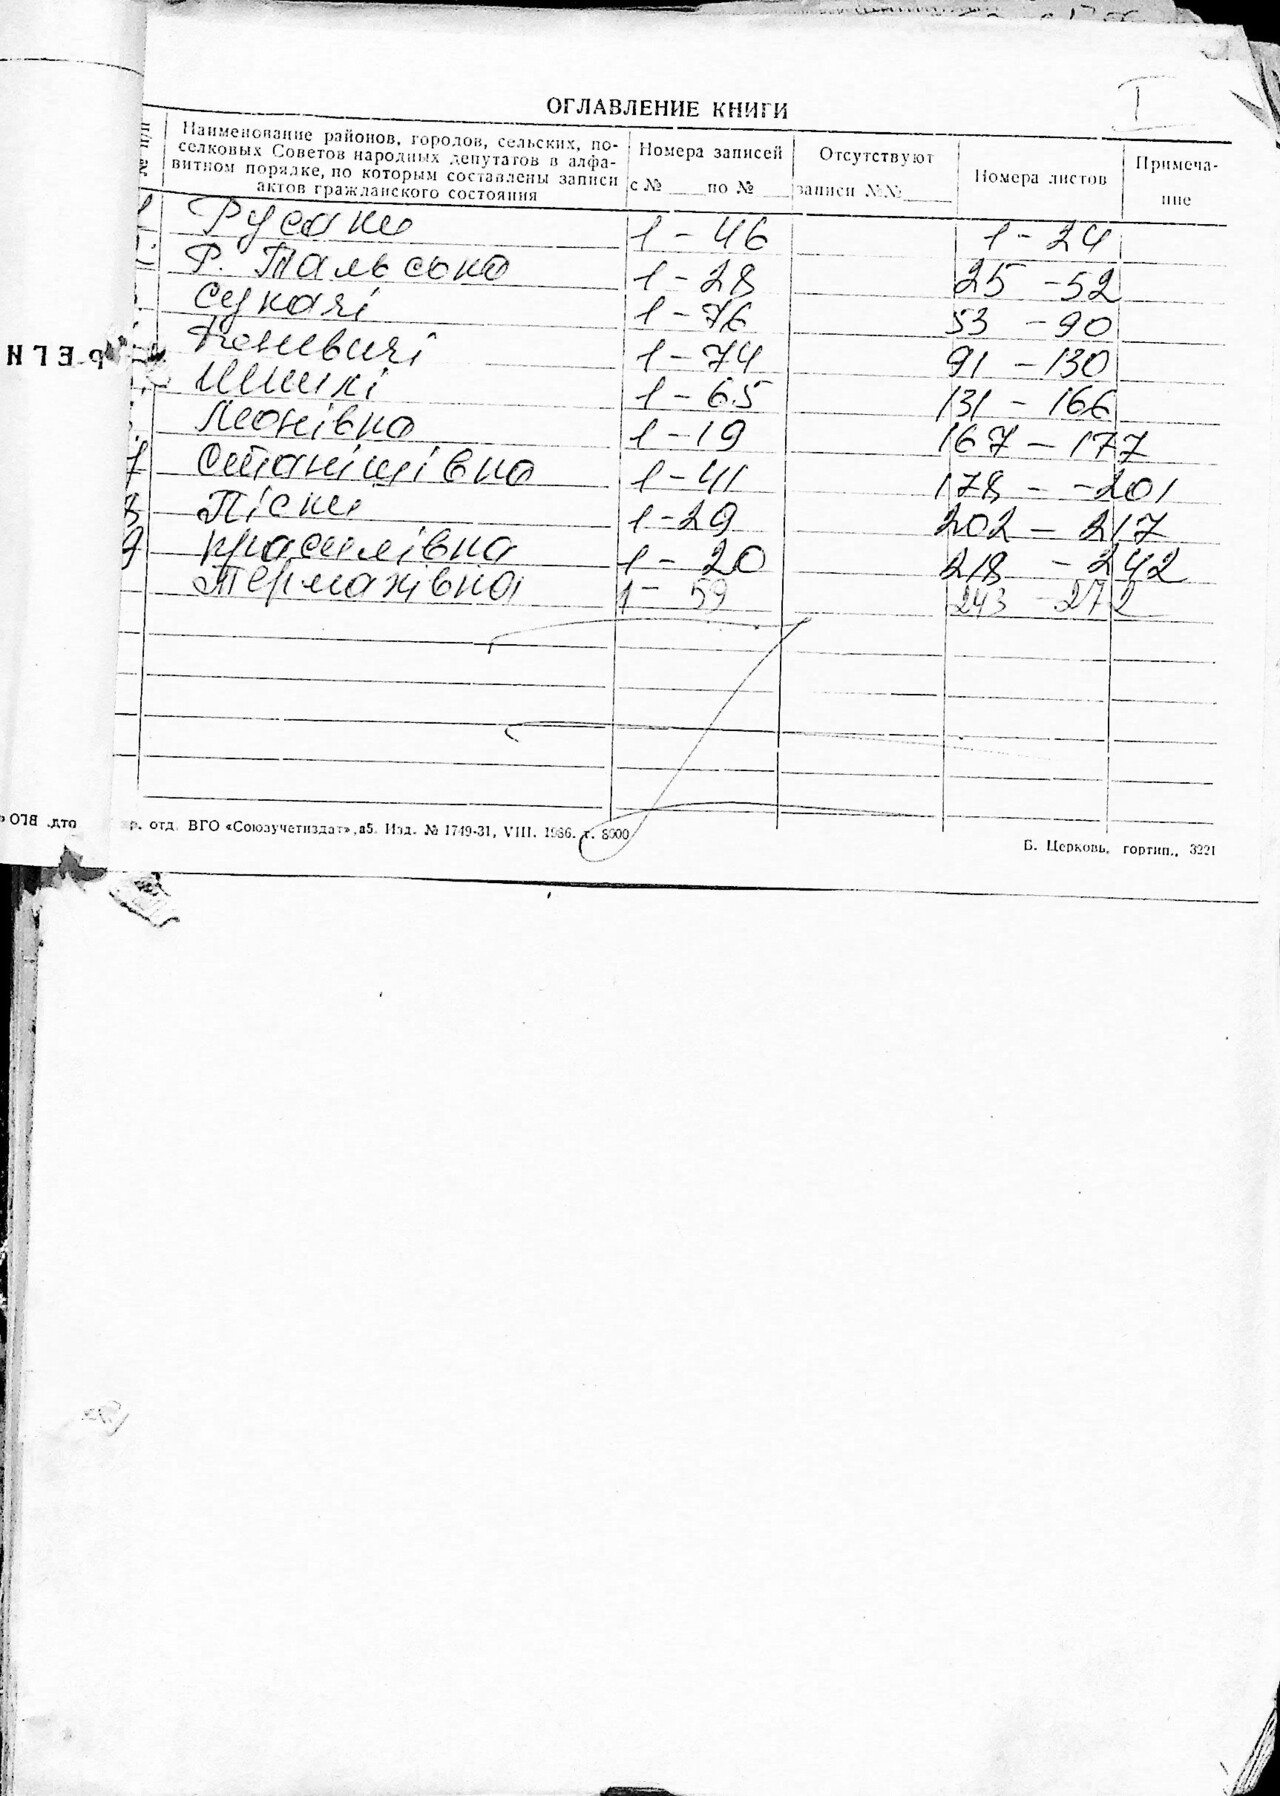 I
ОГЛАВЛЕНИЕ КНИГИ
№ п/п
Наименование районов, городов, сельских, по-
селковых Советов народных депутатов в алфа-
витном порядке, по которым составлены записи
актов гражданского состояния
Номера записей
с № по №
Отсутствуют
записи №№
Номера листов
Примеча-
ние
1 Русаки 1 - 46 1 - 24
Р. Тальська 1 - 28 25 - 52
Сукачі 1 - 76 53 - 90
Коневичі 1 - 74 91 - 130
Шпилі 1 - 65 131 - 166
Леонівка 1 - 19 167 - 177
7 Станішівка 1 - 41 178 - - 201
8 Піски 1 - 29 202 - 217
9 Красилівка 1 - 20 218 - 242
Термахівка 1 - 59 243 - 272
РЕГИ
отд. ВГО
р. отд. ВГО «Союзучетиздат», а5. Изд. № 1749-31, VIII. 1986. т. 8000
Б. Церковь, гортип., 3221